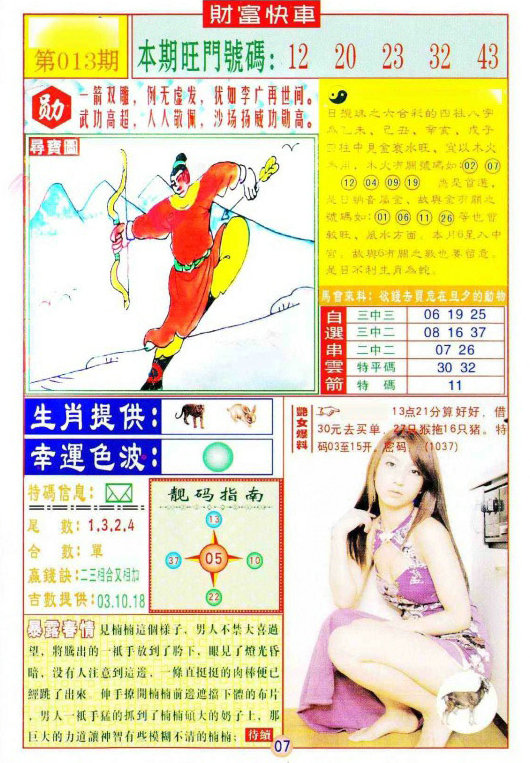 財富快車
第013期
本期旺門號碼：12 20 23 32 43
勋
一箭双雕，例无虚发，犹如李广再世间。
武功高超，人人敬佩，沙场扬威功勋高。
尋寶圖
日提珠之六合彩的四柱八字
為乙未、己丑、辛亥、戊子
四柱中見金衰水旺，宜以木火
為用，木火有關號碼如:02 07
12 04 09 19 為是首選，
是日納音屬金，故與金有關之
號碼如:01 06 11 26等也曾
較旺、風水方面，本月6星入中
宮，故與6有關之數也要留意。
是日不利生肖為蛇。
馬會來料：欲錢去買危在旦夕的動物
自選串雲箭
三中三 06 19 25
三中二 08 16 37
二中二 07 26
特平碼 30 32
特 碼 11
生肖提供：
幸運色波：
艷女爆料
13点21分算好好，借
30元去买单，27只猴拖16只猪。特
码03至15开，密码 (1037)
特碼信息：
尾 數：1,3,2,4
合 數：單
贏錢訣:二三相合又相加
吉數提供:03.10.18
靓码指南
13
37 05 10
22
暴露春情 見楠楠這個樣子，男人不禁大喜過
望，將騰出的一衹手放到了胯下，眼見了燈光昏
暗，没有人注意到這邊，一條直挺挺的肉棒便已
經跳了出來，伸手撩開楠楠前邊遮擋下體的布片
，男人一衹手猛的抓到了楠楠碩大的奶子上，那
巨大的力道讓神智有些模糊不清的楠楠； 待續
07